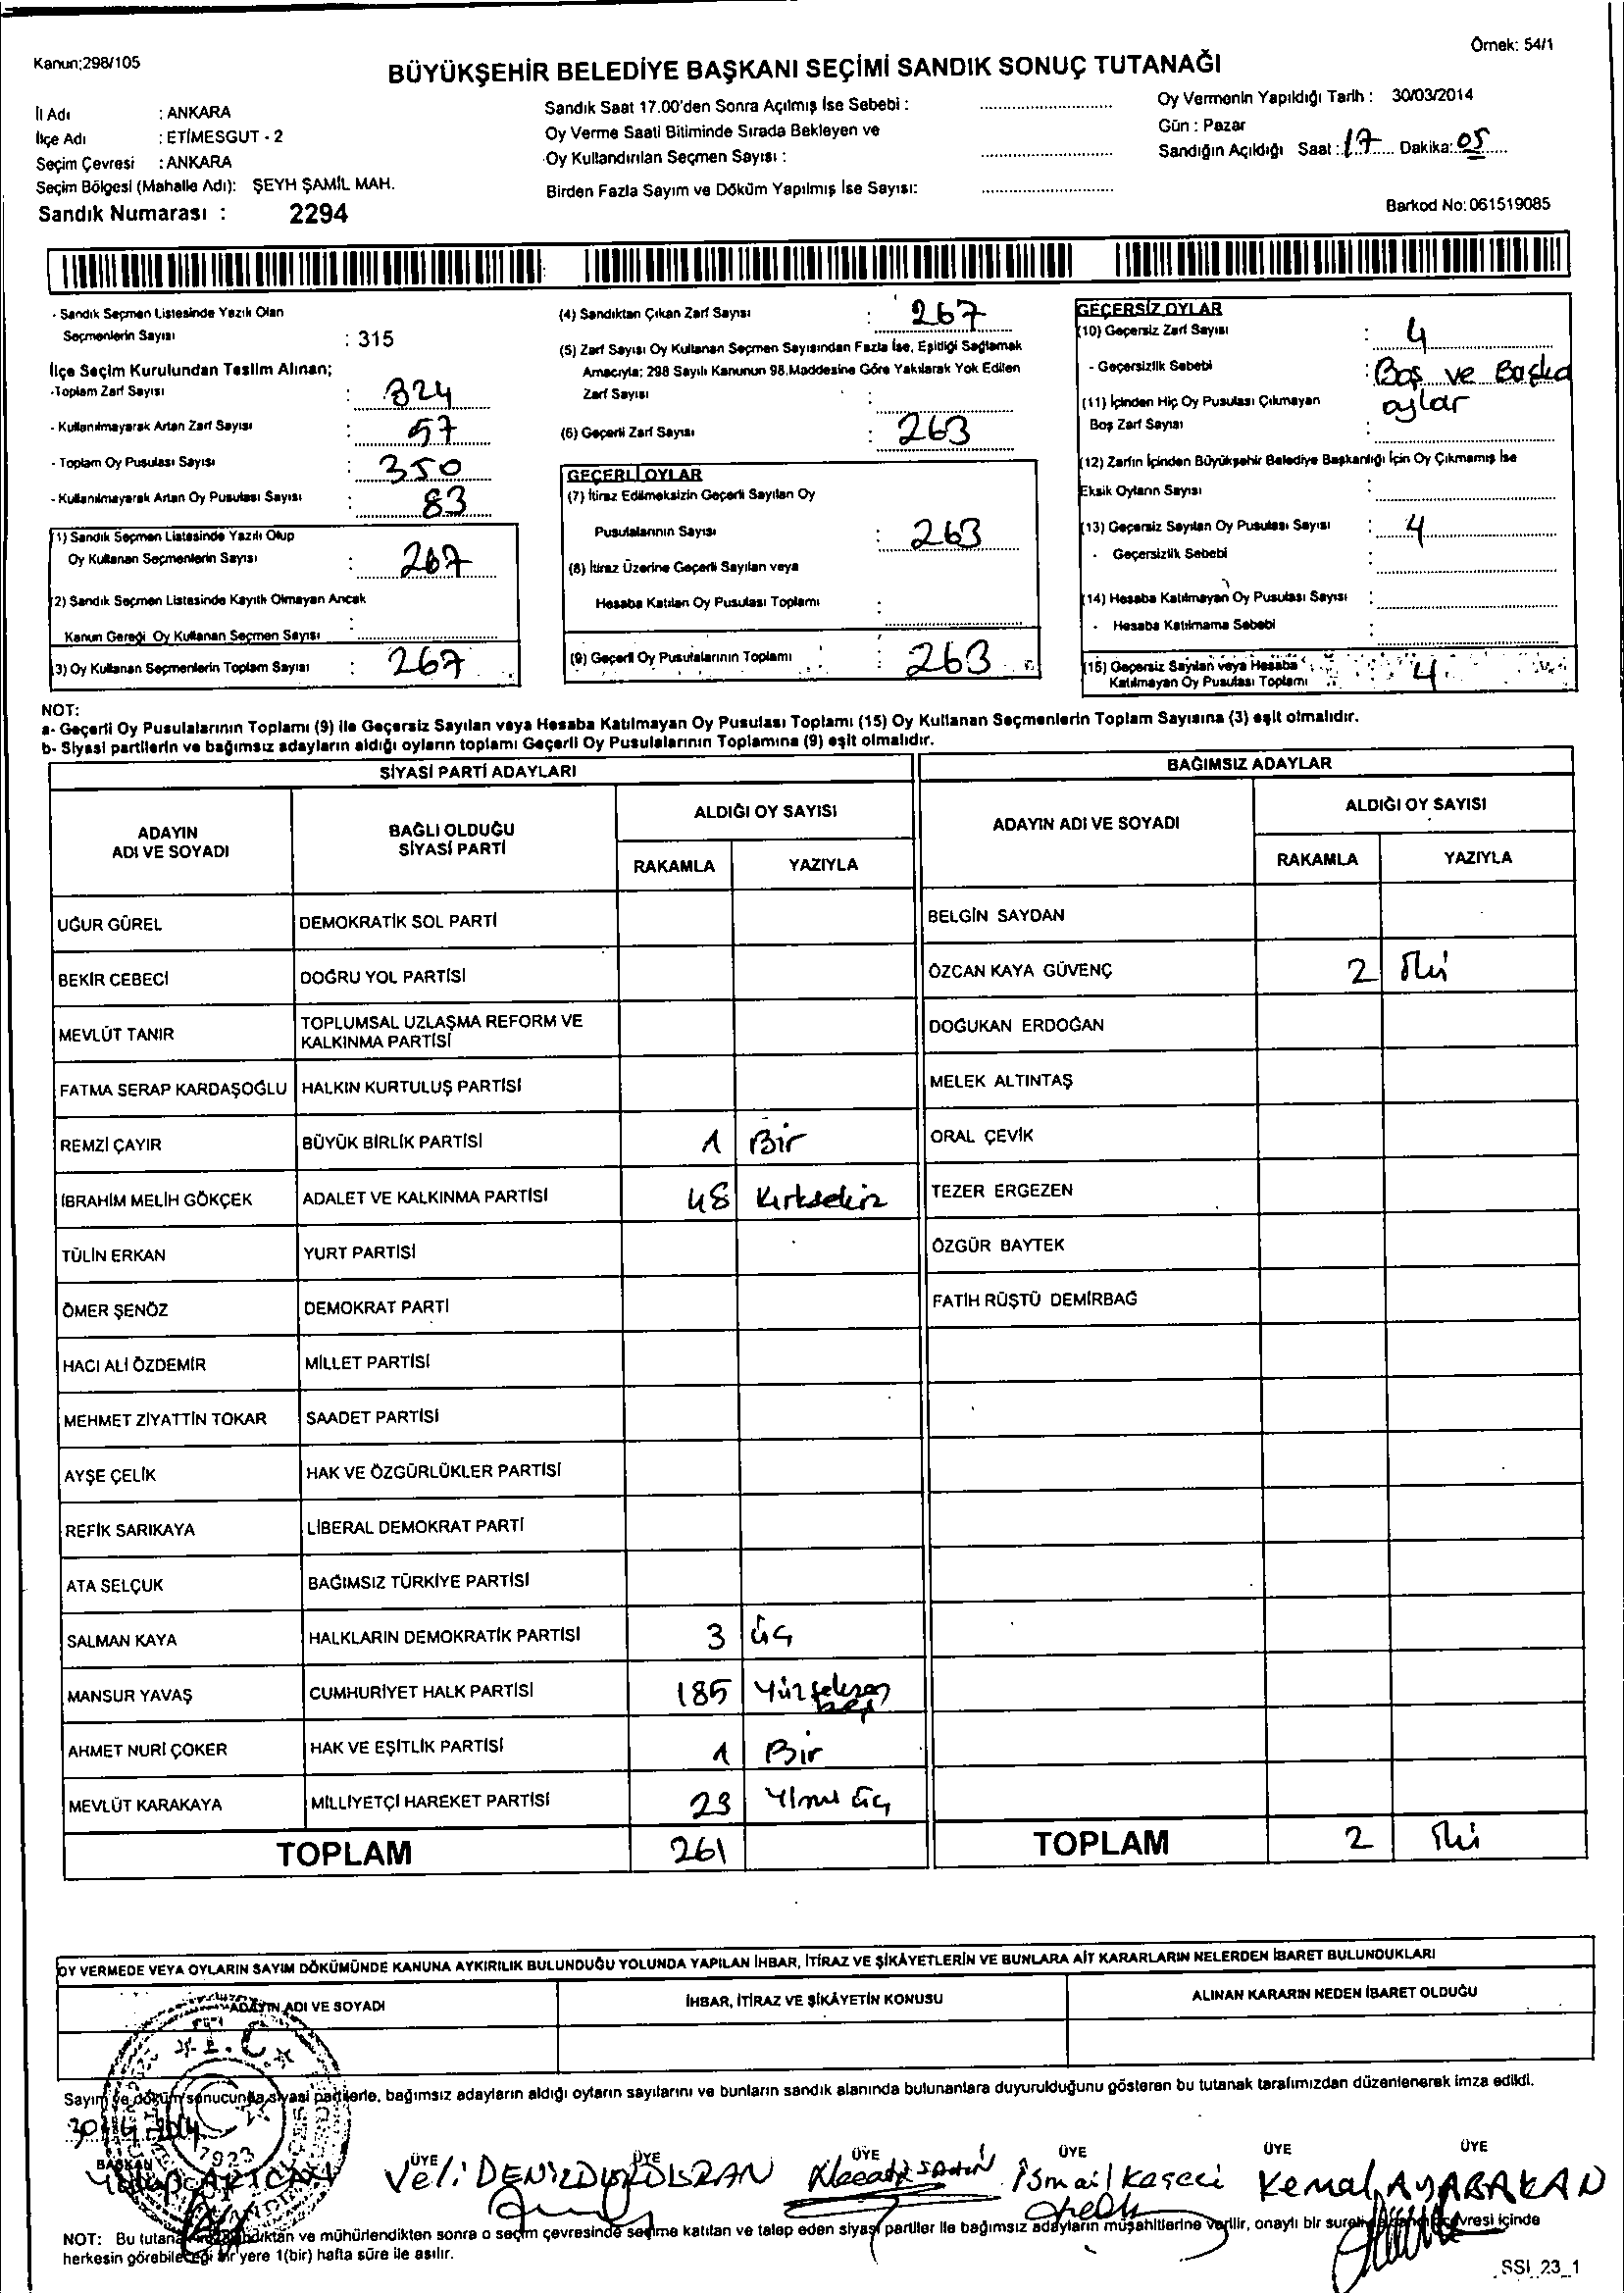 Örnek: 54/1
Kanun;298/105
BÜYÜKŞEHİR BELEDİYE BAŞKANI SEÇİMİ SANDIK SONUÇ TUTANAĞI
İl Adı : ANKARA
İlçe Adı : ETİMESGUT - 2
Seçim Çevresi : ANKARA
Seçim Bölgesi (Mahalle Adı): ŞEYH ŞAMİL MAH.
Sandık Numarası : 2294
Sandık Saat 17.00'den Sonra Açılmış İse Sebebi :
Oy Verme Saati Bitiminde Sırada Bekleyen ve
Oy Kullandırılan Seçmen Sayısı :
Birden Fazla Sayım ve Döküm Yapılmış İse Sayısı:
Oy Vermenin Yapıldığı Tarih : 30/03/2014
Gün : Pazar
Sandığın Açıldığı Saat : 17 Dakika: 05
Barkod No: 061519085
- Sandık Seçmen Listesinde Yazılı Olan
Seçmenlerin Sayısı : 315
İlçe Seçim Kurulundan Teslim Alınan;
-Toplam Zarf Sayısı : 324
- Kullanılmayarak Artan Zarf Sayısı : 57
- Toplam Oy Pusulası Sayısı : 350
- Kullanılmayarak Artan Oy Pusulası Sayısı : 83
(1) Sandık Seçmen Listesinde Yazılı Olup
Oy Kullanan Seçmenlerin Sayısı : 267
(2) Sandık Seçmen Listesinde Kayıtlı Olmayan Ancak
Kanun Gereği Oy Kullanan Seçmen Sayısı :
(3) Oy Kullanan Seçmenlerin Toplam Sayısı : 267
(4) Sandıktan Çıkan Zarf Sayısı : 267
(5) Zarf Sayısı Oy Kullanan Seçmen Sayısından Fazla İse, Eşitliği Sağlamak
Amacıyla; 298 Sayılı Kanunun 98.Maddesine Göre Yakılarak Yok Edilen
Zarf Sayısı :
(6) Geçerli Zarf Sayısı : 263
GEÇERLİ OYLAR
(7) İtiraz Edilmeksizin Geçerli Sayılan Oy
Pusulalarının Sayısı : 263
(8) İtiraz Üzerine Geçerli Sayılan veya
Hesaba Katılan Oy Pusulası Toplamı :
(9) Geçerli Oy Pusulalarının Toplamı : 263
GEÇERSİZ OYLAR
(10) Geçersiz Zarf Sayısı : 4
- Geçersizlik Sebebi : Boş ve Başka
oylar
(11) İçinden Hiç Oy Pusulası Çıkmayan
Boş Zarf Sayısı :
(12) Zarfın İçinden Büyükşehir Belediye Başkanlığı İçin Oy Çıkmamış İse
Eksik Oyların Sayısı :
(13) Geçersiz Sayılan Oy Pusulası Sayısı : 4
- Geçersizlik Sebebi :
(14) Hesaba Katılmayan Oy Pusulası Sayısı :
- Hesaba Katılmama Sebebi :
(15) Geçersiz Sayılan veya Hesaba
Katılmayan Oy Pusulası Toplamı : 4
NOT:
a- Geçerli Oy Pusulalarının Toplamı (9) ile Geçersiz Sayılan veya Hesaba Katılmayan Oy Pusulası Toplamı (15) Oy Kullanan Seçmenlerin Toplam Sayısına (3) eşit olmalıdır.
b- Siyasi partilerin ve bağımsız adayların aldığı oyların toplamı Geçerli Oy Pusulalarının Toplamına (9) eşit olmalıdır.
SİYASİ PARTİ ADAYLARI
ADAYIN ADI VE SOYADI BAĞLI OLDUĞU SİYASİ PARTİ ALDIĞI OY SAYISI
RAKAMLA YAZIYLA
UĞUR GÜREL DEMOKRATİK SOL PARTİ
BEKİR CEBECİ DOĞRU YOL PARTİSİ
MEVLÜT TANIR TOPLUMSAL UZLAŞMA REFORM VE KALKINMA PARTİSİ
FATMA SERAP KARDAŞOĞLU HALKIN KURTULUŞ PARTİSİ
REMZİ ÇAYIR BÜYÜK BİRLİK PARTİSİ 1 Bir
İBRAHİM MELİH GÖKÇEK ADALET VE KALKINMA PARTİSİ 48 Kırksekiz
TÜLİN ERKAN YURT PARTİSİ
ÖMER ŞENÖZ DEMOKRAT PARTİ
HACI ALİ ÖZDEMİR MİLLET PARTİSİ
MEHMET ZİYATTİN TOKAR SAADET PARTİSİ
AYŞE ÇELİK HAK VE ÖZGÜRLÜKLER PARTİSİ
REFİK SARIKAYA LİBERAL DEMOKRAT PARTİ
ATA SELÇUK BAĞIMSIZ TÜRKİYE PARTİSİ
SALMAN KAYA HALKLARIN DEMOKRATİK PARTİSİ 3 üç
MANSUR YAVAŞ CUMHURİYET HALK PARTİSİ 185 Yüzseksen beş
AHMET NURİ ÇOKER HAK VE EŞİTLİK PARTİSİ 1 Bir
MEVLÜT KARAKAYA MİLLİYETÇİ HAREKET PARTİSİ 23 Yirmi üç
TOPLAM 261
BAĞIMSIZ ADAYLAR
ADAYIN ADI VE SOYADI ALDIĞI OY SAYISI
RAKAMLA YAZIYLA
BELGİN SAYDAN
ÖZCAN KAYA GÜVENÇ 2 İki
DOĞUKAN ERDOĞAN
MELEK ALTINTAŞ
ORAL ÇEVİK
TEZER ERGEZEN
ÖZGÜR BAYTEK
FATİH RÜŞTÜ DEMİRBAĞ
TOPLAM 2 İki
OY VERMEDE VEYA OYLARIN SAYIM DÖKÜMÜNDE KANUNA AYKIRILIK BULUNDUĞU YOLUNDA YAPILAN İHBAR, İTİRAZ VE ŞİKÂYETLERİN VE BUNLARA AİT KARARLARIN NELERDEN İBARET BULUNDUKLARI
ADAYIN ADI VE SOYADI İHBAR, İTİRAZ VE ŞİKÂYETİN KONUSU ALINAN KARARIN NEDEN İBARET OLDUĞU
T.C
1923
Sayım ve döküm sonucunda siyasi partilerle, bağımsız adayların aldığı oyların sayılarını ve bunların sandık alanında bulunanlara duyurulduğunu gösteren bu tutanak tarafımızdan düzenlenerek imza edildi.
BAŞKAN ÜYE ÜYE ÜYE ÜYE ÜYE ÜYE
Veli Necati ŞAHİN İsmail Keseci Kemal AYABAKAN
NOT: Bu tutanak ve mühürlendikten sonra o seçim çevresinde seçime katılan ve talep eden siyasi partiler ile bağımsız adayların müşahitlerine verilir, onaylı bir sureti çevresi içinde
herkesin görebileceği bir yere 1(bir) hafta süre ile asılır.
SSI_23_1